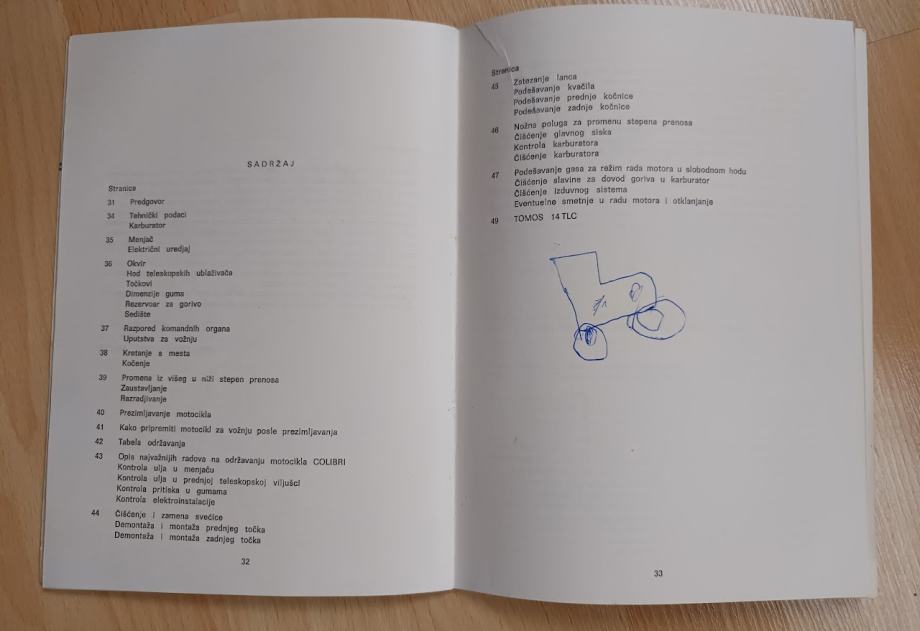 SADRŽAJ
Stranica
31 Predgovor
34 Tehnički podaci
Karburator
35 Menjač
Električni uredjaj
36 Okvir
Hod teleskopskih ublaživača
Točkovi
Dimenzije guma
Rezervoar za gorivo
Sedište
37 Razpored komandnih organa
Uputstva za vožnju
38 Kretanje s mesta
Kočenje
39 Promena iz višeg u niži stepen prenosa
Zaustavljanje
Razradjivanje
40 Prezimljavanje motocikla
41 Kako pripremiti motocikl za vožnju posle prezimljavanja
42 Tabela održavanja
43 Opis najvažnijih radova na održavanju motocikla COLIBRI
Kontrola ulja u menjaču
Kontrola ulja u prednjoj teleskopskoj viljušci
Kontrola pritiska u gumama
Kontrola elektroinstalacije
44 Čišćenje i zamena svećice
Demontaža i montaža prednjeg točka
Demontaža i montaža zadnjeg točka
32
Stranica
45 Zatezanje lanca
Podešavanje kvačila
Podešavanje prednje kočnice
Podešavanje zadnje kočnice
46 Nožna poluga za promenu stepena prenosa
Čišćenje glavnog siska
Kontrola karburatora
Čišćenje karburatora
47 Podešavanje gasa za režim rada motora u slobodnom hodu
Čišćenje slavine za dovod goriva u karburator
Čišćenje izduvnog sistema
Eventuelne smetnje u radu motora i otklanjanje
49 TOMOS 14 TLC
33